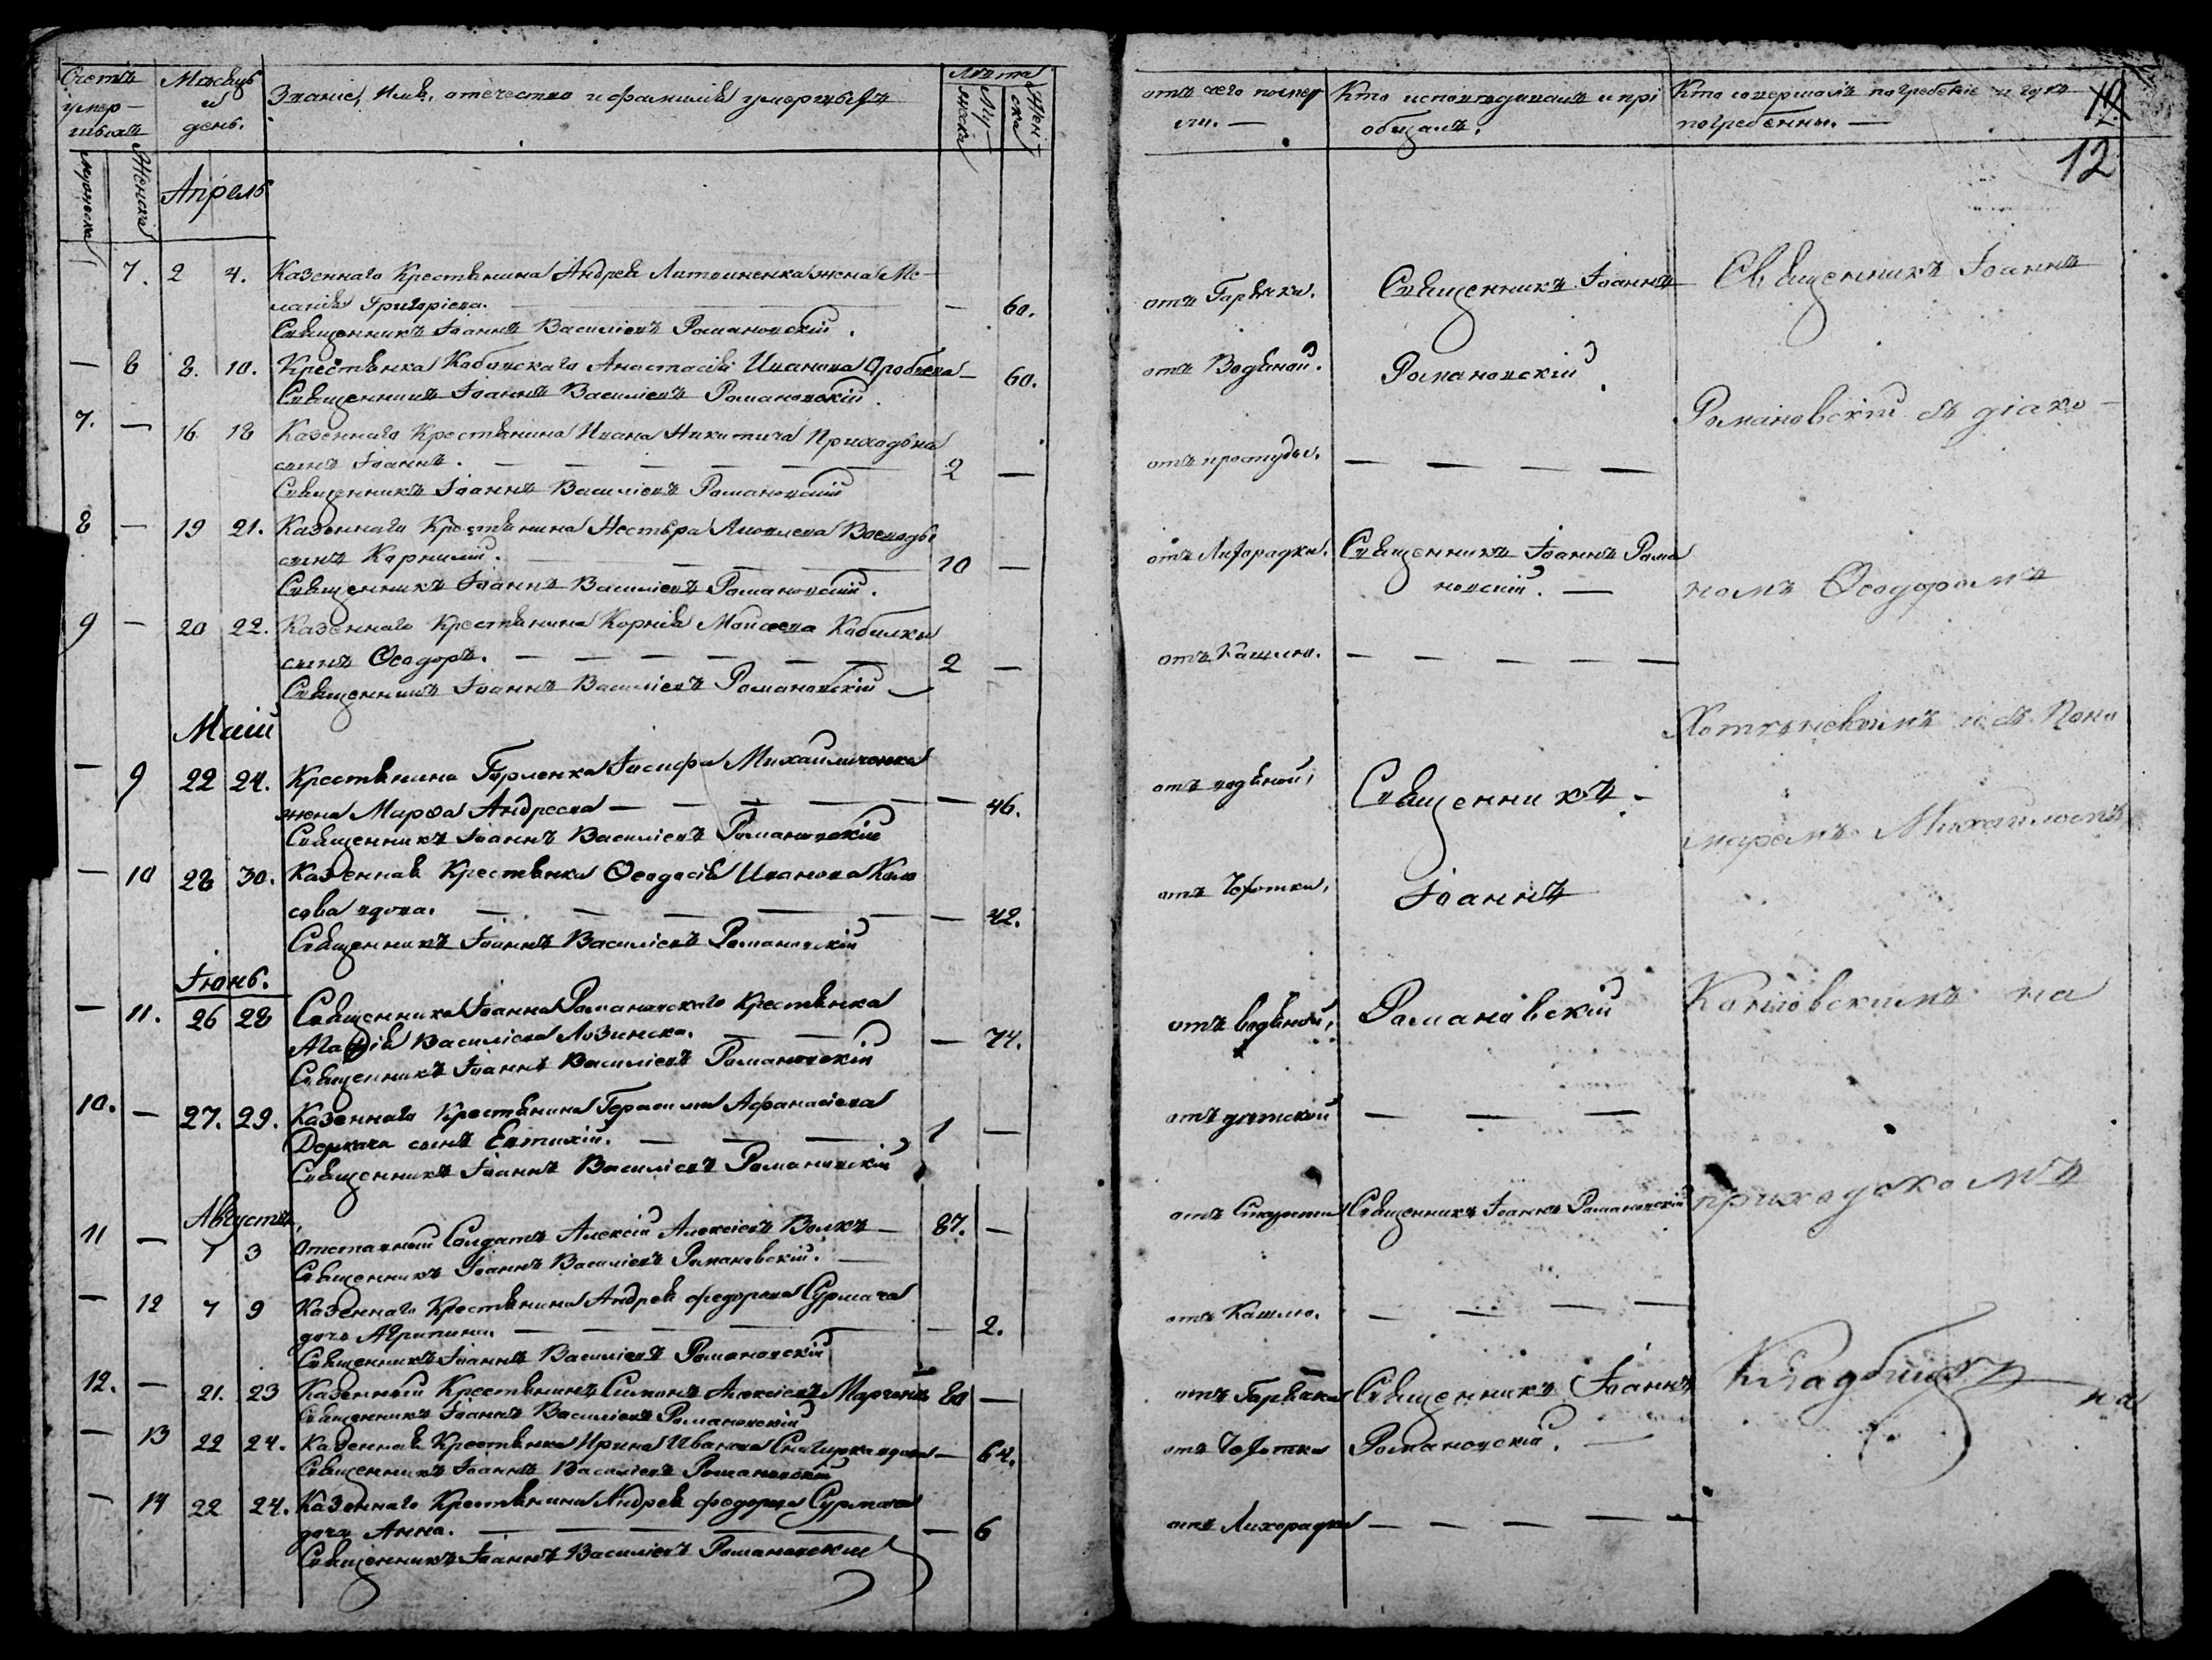 Счетъ
умер-
шихъ
Мѣсяцъ
и
день.
Званіе, Имя, отечество и фамилія умершихъ
Лѣта
Му-
жска
Жен
ска
Мужеска
Женска
Апрель
7. 2 4. Казеннаго Крестьянина Андрея Литвиненка жена Ме-
ланія Григоріева. — 60.
Священникъ Іоаннъ Василіевъ Романовскій.
— 8 8. 10. Крестьянка Анастасія Иванова — 60.
Священникъ Іоаннъ Василіевъ Романовскій.
7. — 16 18 Казеннаго Крестьянина Ивана Никитича Приходька
сынъ Іоаннъ. — 2 —
Священникъ Іоаннъ Василіевъ Романовскій
8 — 19 21. Казеннаго Крестьянина Нестера Яковлева
сынъ Корнилій. — 10 —
Священникъ Іоаннъ Василіевъ Романовскій.
9 — 20 22. Казеннаго Крестьянина Корнія Моисеева Кобилки
сынъ Ѳеодоръ. — 2 —
Священникъ Іоаннъ Василіевъ Романовскій
Маій
— 9 22 24. Крестьянина Горленка Іосифа Михайличенка
жена Марѳа Андреева — — 46.
Священникъ Іоаннъ Василіевъ Романовскій
— 10 28 30. Казенная Крестьянка Ѳеодосія Иванова
вдова. — — 42.
Священникъ Іоаннъ Василіевъ Романовскій
Іюнь.
— 11. 26 28 Священника Іоанна Романовскаго Крестьянка
Агафія Василіева Лозинска. — 74.
Священникъ Іоаннъ Василіевъ Романовскій
10. — 27. 29. Казеннаго Крестьянина Герасима Афанасіева
Деркача сынъ Евтихій. — 1 —
Священникъ Іоаннъ Василіевъ Романовскій
Августъ
11 — 1 3 Отставный Солдатъ Алексій Алексіевъ Волкъ — 87. —
Священникъ Іоаннъ Василіевъ Романовскій.
— 12 7 9 Казеннаго Крестьянина Андрея Федорова Сурмача
дочь Агрипина. — — 2.
Священникъ Іоаннъ Василіевъ Романовскій
12. — 21. 23 Казенный Крестьянинъ Симонъ Алексіевъ Марченко 80 —
Священникъ Іоаннъ Василіевъ Романовскій
— 13 22 24. Казенная Крестьянка Ирина Иванова вдова — 64.
Священникъ Іоаннъ Василіевъ Романовскій
— 14 22 24. Казеннаго Крестьянина Андрея Федорова Сурмача
дочь Анна. — — 6
Священникъ Іоаннъ Василіевъ Романовскій
отъ чего
Кто исповѣдывалъ и прі
общалъ.
Кто совершалъ погребеніе и гдѣ
погребенны. —
12
отъ Горячки. Священникъ Іоаннъ
отъ Водяной. Романовскій
отъ простуды. — — — —
отъ Лихорадки. Священникъ Іоаннъ Рома
новскій. —
отъ Кашлю. — — — — —
отъ водяной, Священникъ
отъ Чехотки, Іоаннъ
отъ водяной, Романовскій
отъ дѣтской — — —
отъ Старости Священникъ Іоаннъ Романовскій
отъ Кашлю. — — — —
отъ Горячки Священникъ Іоаннъ
отъ Чехотки Романовскій. —
отъ Лихорадки — — — — —
Священникъ Іоаннъ
Романовскій съ діако-
номъ Ѳеодоромъ
и съ Поно
маремъ Михаиломъ
на
приходскомъ
Кладбищѣ